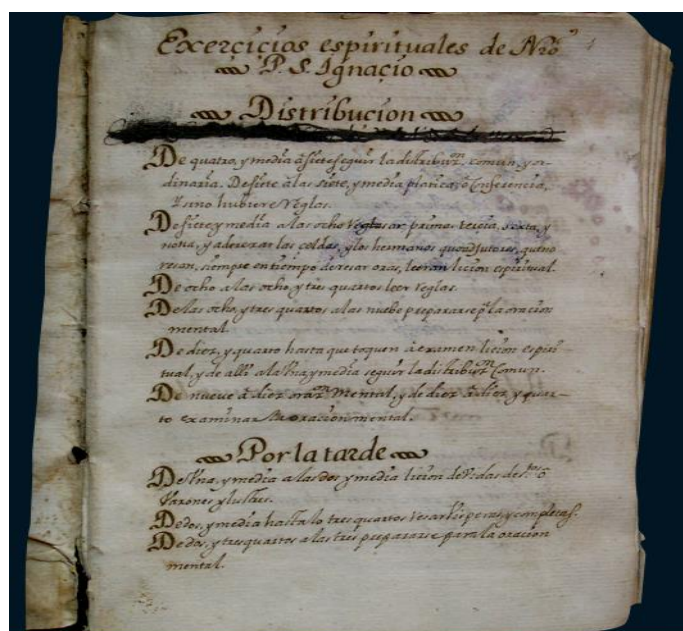 Exercicios espirituales de Nro
P. S. Ignacio
Distribucion
De quatro, y media â siete seguir la distribuon. comun, y or-
dinaria. De siete â las siete, y media platica, ô Conferencia,
Y sino hubiere Reglas.
De siete y media a las ocho Resar prima tercia, sexta, y
nona, y aderezar las celdas, y los hermanos quoadjutores, que no
resan, siempre en tiempo de resar oras, leeran licion espiritual.
De ocho a las ocho, y tres quartos leer Reglas.
De las ocho, y tres quartos a las nuebe prepararse pa. la oracion
mental.
De diez, y quarto hasta que toquen â examen licion espiri-
tual, y de alli a la Una y media seguir la distribuon. Comun.
De nueve â diez oraon. Mental, y de diez â diez y quar-
to examinar la oracion mental.
Por la tarde
De Una, y media a las dos y media licion de Vidas de Stos. ô
Varones ylustres.
De dos, y media hasta lo tres quartos Resar Visperas, y completas.
De dos, y tres quartos a las tres prepararse para la oracion
mental.